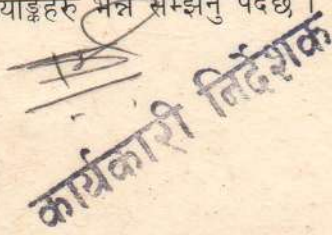 भन्ने सम्झनु पर्दछ ।
कार्यकारी निर्देशक